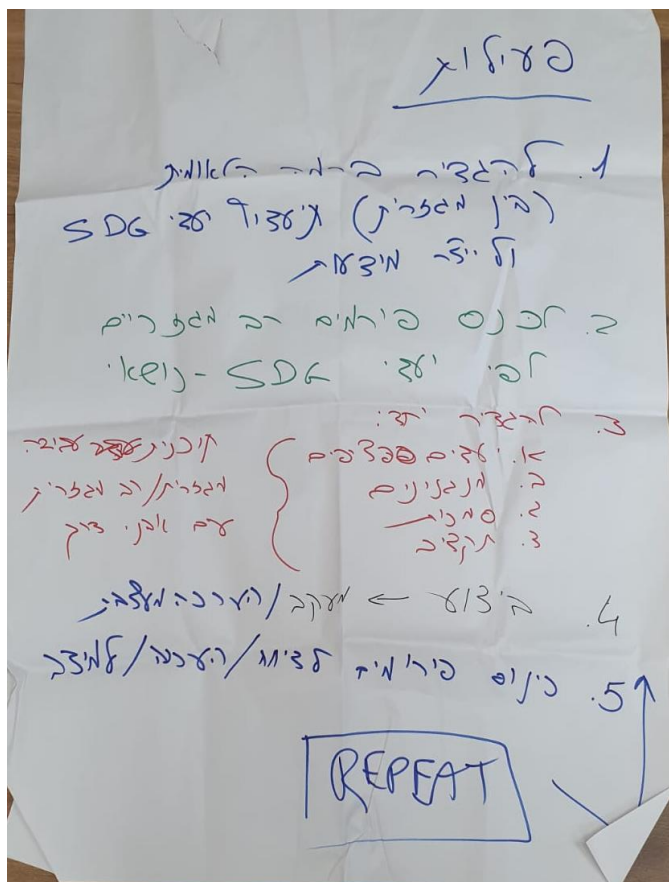 פעילות
1. להגדיר ברמה הלאומית
(בין מגזרית) תיעדוף יעדי SDG
ולייצר מודעות
2. לכנס פורומים רב מגזריים
לפי יעדי SDG - נושאי
3. להגדיר יחד:
א. יעדים ספציפים
ב. מנגנונים
ג. סמכות
ד. תקציב
תוכנית עבודה
מגזרית/רב מגזרית
עם אבני דרך
4. ביצוע ← מעקב/הערכה מעצבת
5. כינוס פורומים לדיווח/הערכה/למידה
REPEAT